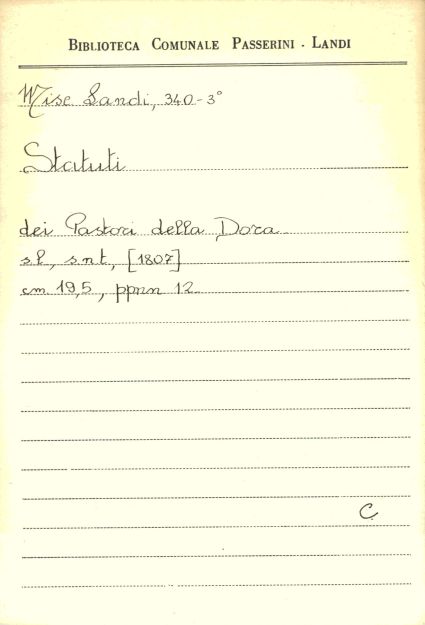 BIBLIOTECA COMUNALE PASSERINI - LANDI
Misc Landi, 340-3°
Statuti
dei Pastori della Dora
sl, snt, [1807]
cm 19,5, ppnn 12
C